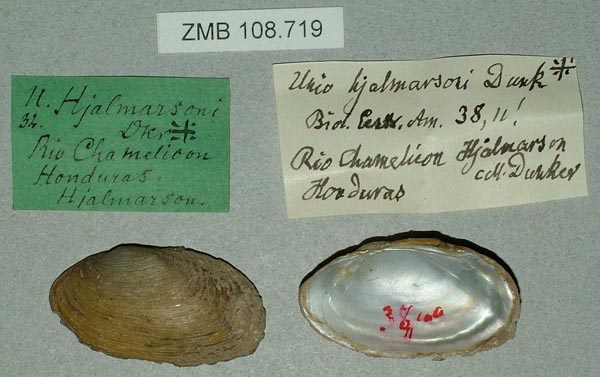 ZMB 108.719
U. Hjalmarsoni
32. Dkr*
Rio Chamelicon
Honduras.
Hjalmarson.
Unio hjalmarsoni Dunk*
Biol. Centr. Am. 38, 11!
Rio Chamelicon Hjalmarson
coll. Dunker
Honduras